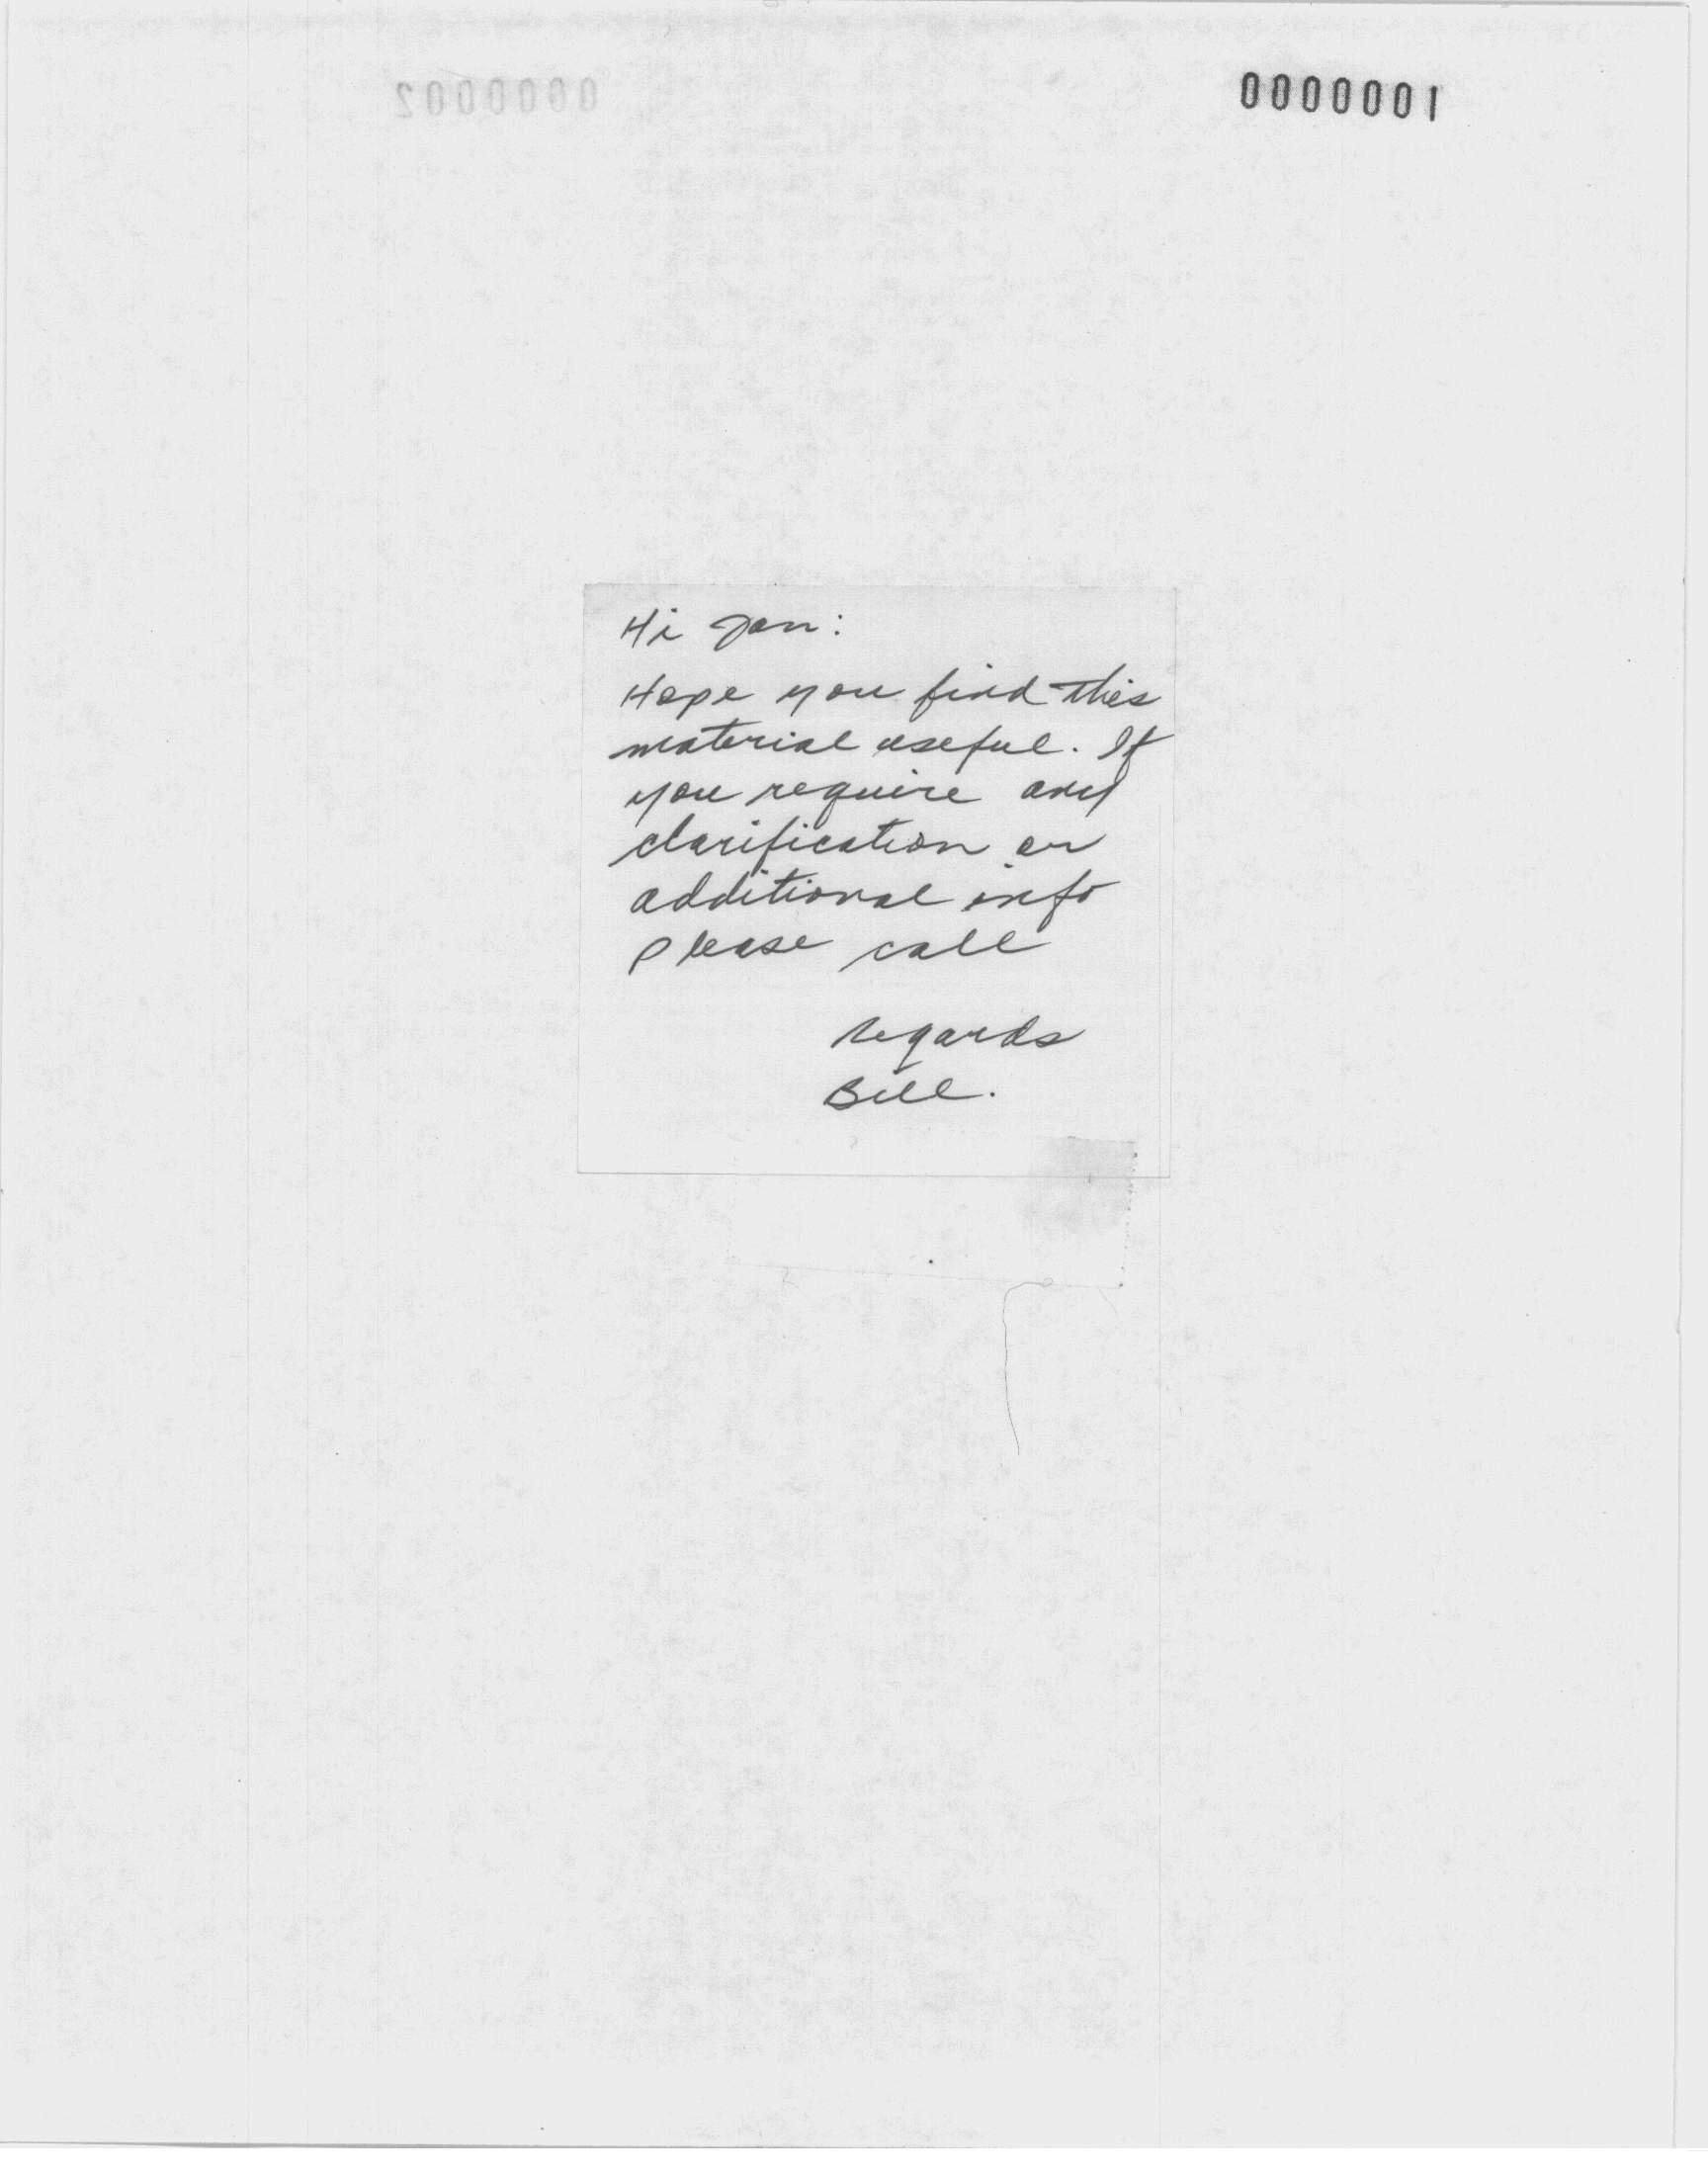 0000001
0000002
Hi Jan:
Hope you find this
material useful. If
you require any
clarification or
additional info
please call
regards
Bill.